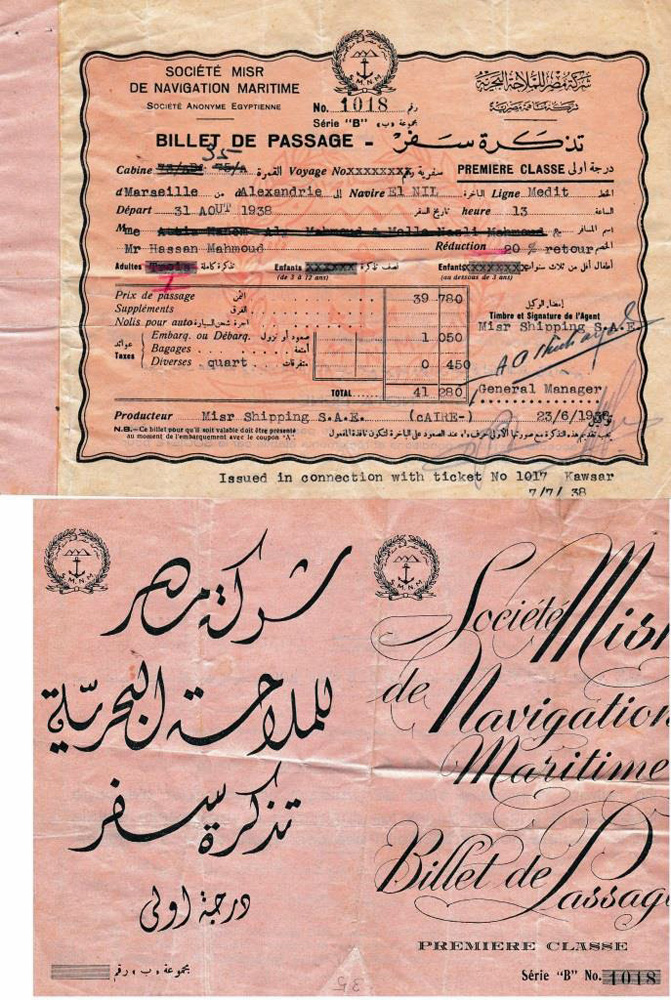 SOCIÉTÉ MISR
DE NAVIGATION MARITIME
SOCIÉTÉ ANONYME EGYPTIENNE
S.M.N.M
شركة مصر للملاحة البحرية
شركة مساهمة مصرية
No. 1018 رقم
Série "B" مجموعة «ب»
BILLET DE PASSAGE - تذكرة سفر
Cabine 75/A القمرة Voyage No xxxxxxxx سفرية رقم PREMIERE CLASSE درجة اولى
d'Marseille من dAlexandrie الى Navire El NIL الباخرة Ligne Medit الخط
Départ 31 AOUT 1938 تاريخ السفر heure 13 الساعة
Mme Mahmoud & Melle Mahmoud & اسم المسافر
Mr Hassan Mahmoud Réduction 20 % retour الخصم
Adultes تذكرة كاملة Enfants xxxxxx نصف تذكرة Enfants xxxxxxx أطفال أقل من ثلاث سنوات
(de 3 à 12 ans) (au dessous de 3 ans)
Prix de passage الثمن 39 780
Suppléments الفرق
Nolis pour auto أجرة شحن السيارة
Taxes عوائد
Embarq. ou Débarq. صعود أو نزول 1 050
Bagages أمتعة
Diverses quart متفرقات 0 450
TOTAL 41 280
إمضاء الوكيل
Timbre et Signature de l'Agent
Misr Shipping S.A.E.
General Manager
Producteur Misr Shipping S.A.E. (cAIRE-) 23/6/1938
N.B.—Ce billet pour qu'il soit valable doit être présenté
au moment de l'embarquement avec le coupon "A"
Issued in connection with ticket No 1017 Kawsar
7/7/ 38
S.M.N.M
شركة مصر
للملاحة البحرية
تذكرة سفر
درجة اولى
مجموعة «ب» رقم
S.M.N.M
Société Misr
de Navigation
Maritime
Billet de Passag
PREMIERE CLASSE
Série "B" No. 1018